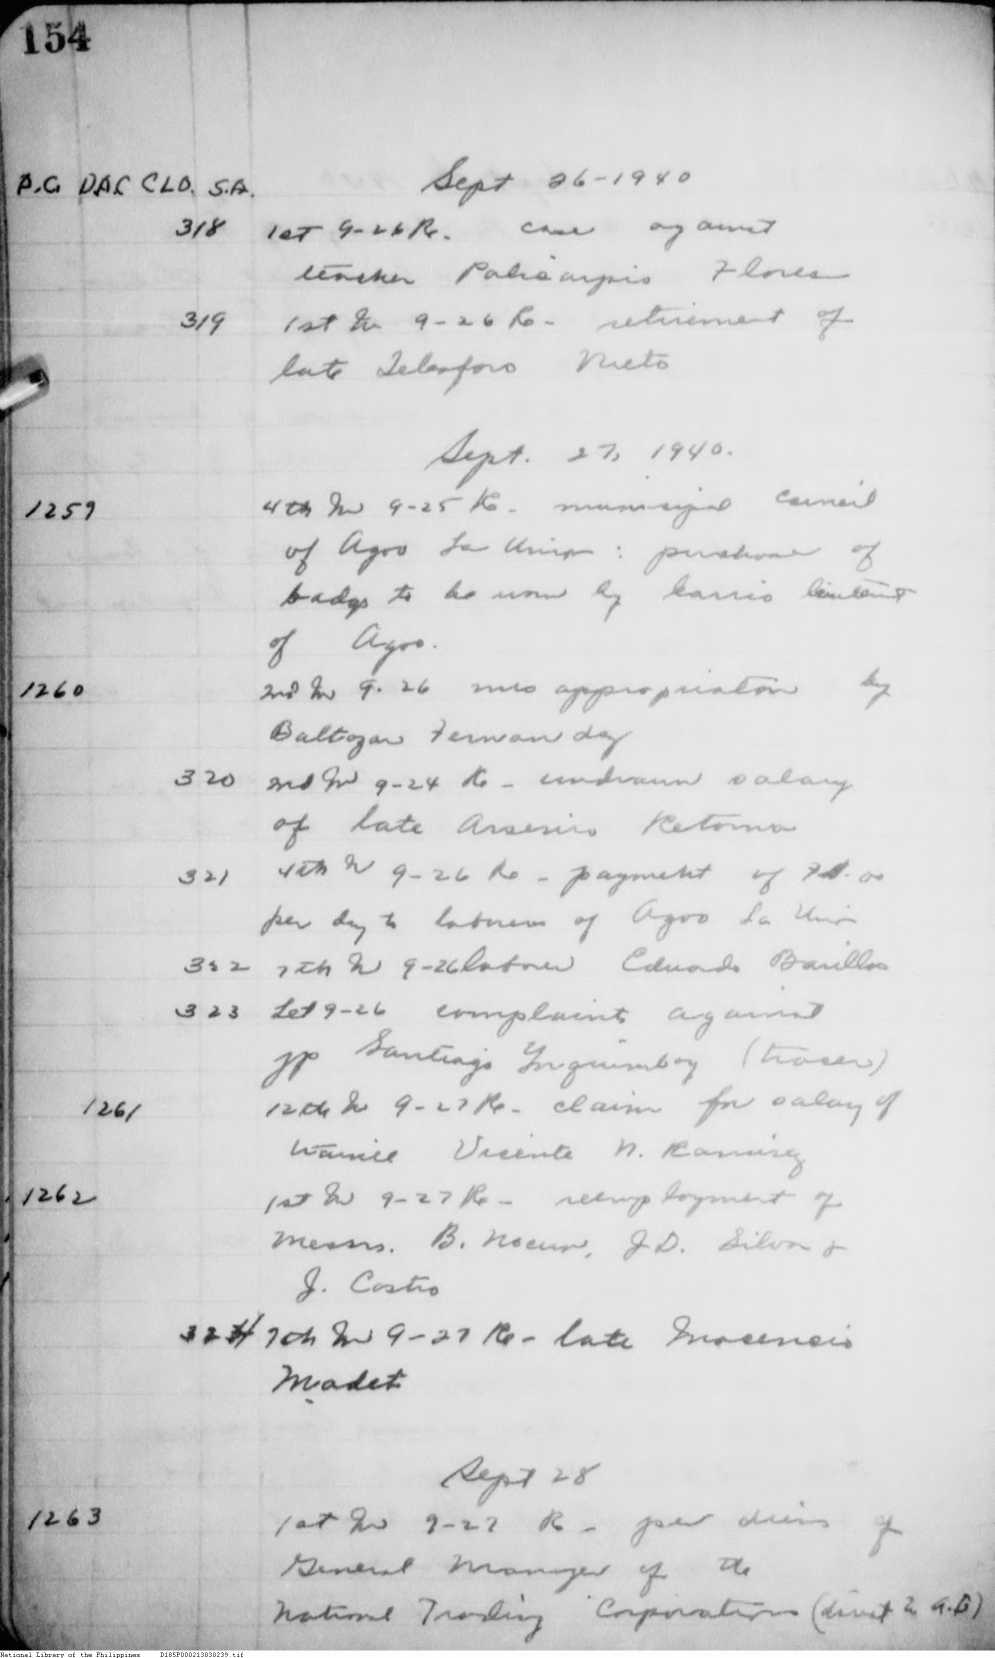 154
A.G DAC CLD. S.A. Sept 26-1940
318 1st 9-26 Re. case against
teacher Policarpio Flores
319 1st In 9-26 Re - retirement of
late Telesforo Nieto
Sept. 27, 1940.
1259 4th In 9-25 Re - municipal Council
of Agoo La Union : purchase of
badgs to be worn by barrio lieutenant
of Agoo.
1260 2nd In 9-26 misappropriation by
Baltazar Fernandez
320 2nd In 9-24 Re - undrawn salary
of late Arsenio Retoma
321 4th In 9-26 Re - payment of
per day to laborers of Agoo La Union
322 7th In 9-26 laborer Eduardo Barillos
323 Let 9-26 complaint against
JP Santiago (tracer)
1261 12th In 9-27 Re - claim for salary of
trainee Vicente N. Ramirez
1262 1st In 9-27 Re - reemployment of
Messrs. B. J.D. Silva &
J. Castro
324 7th In 9-27 Re - late Inocencio
Madet
Sept 28
1263 1st In 9-27 Re - per diems of
General Manager of the
National Trading Corporation (
National Library of the Philippines D185P000213838239.tif